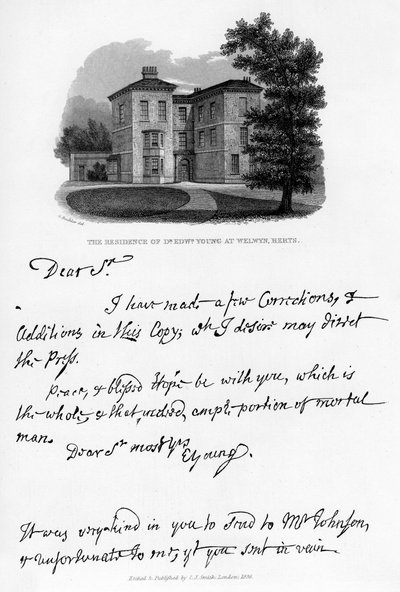 THE RESIDENCE OF DR. EDWD. YOUNG AT WELWYN, HERTS.
Dear Sr.
I have made a few Corrections, &
Additions in this Copy, wh I desire may direct
the Press.
Peace, & blessed Hope be with you, which is
the whole, & that indeed, ample portion of mortal
man.
Dear Sr most yrs
EYoung.
It was very kind in you to send to Mr Johnson,
& unfortunate to me, yt you sent in vain.
Etched & Published by C. J. Smith, London, 1836.